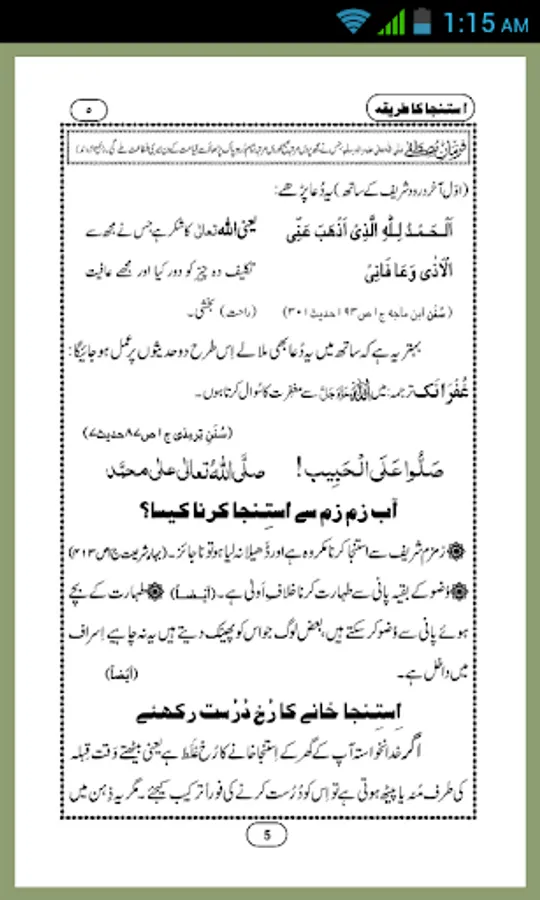 1:15 AM
استنجا کا طریقہ
۵
فرمانِ مصطفےٰ
(اوّل آخر درود شریف کے ساتھ) یہ دُعا پڑھے:
اَلْحَمْدُ لِلّٰهِ الَّذِیْ اَذْهَبَ عَنِّی یعنی اللہ تعالیٰ کا شکر ہے جس نے مجھ سے
الْاَذٰی وَعَافَانِیْ تکلیف دہ چیز کو دور کیا اور مجھے عافیت
(سُنَن ابن ماجہ ج۱ ص۱۹۳ حدیث ۳۰۱) (راحت) بخشی۔
بہتر یہ ہے کہ ساتھ میں یہ دُعا بھی ملا لے اِس طرح دو حدیثوں پر عمل ہو جائیگا:
غُفْرَانَکَ ترجمہ: میں اللہ عزوجل سے مغفرت کا سُوال کرتا ہوں۔
(سُنَنِ تِرمِذی ج۱ ص۸۷ حدیث۷)
صَلُّوْا عَلَی الْحَبِیْب! صلَّی اللّٰہُ تعالٰی علٰی محمَّد
آبِ زم زم سے اِستِنجا کرنا کیسا؟
زمزم شریف سے استنجا کرنا مکروہ ہے اور ڈھیلا نہ لیا ہو تو ناجائز۔ (بہارِ شریعت ج۱ ص۴۱۳)
وُضو کے بقیہ پانی سے طہارت کرنا خلافِ اَولیٰ ہے۔ (اَیضاً) طہارت کے بچے
ہوئے پانی سے وُضو کر سکتے ہیں، بعض لوگ جو اس کو پھینک دیتے ہیں یہ نہ چاہیے اِسراف
میں داخل ہے۔ (اَیضاً)
اِستِنجا خانے کا رُخ دُرُست رکھئے
اگر خدانخواستہ آپ کے گھر کے اِستِنجا خانے کا رُخ غَلَط ہے یعنی بیٹھتے وَقت قِبلہ
کی طرف مُنہ یا پیٹھ ہوتی ہے تو اِس کو دُرُست کرنے کی فوراً ترکیب کیجئے۔ مگر یہ ذِہن میں
5